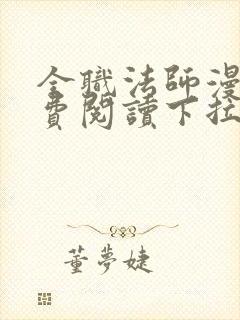 全職法師漫
費閱讀下拉
董夢婕